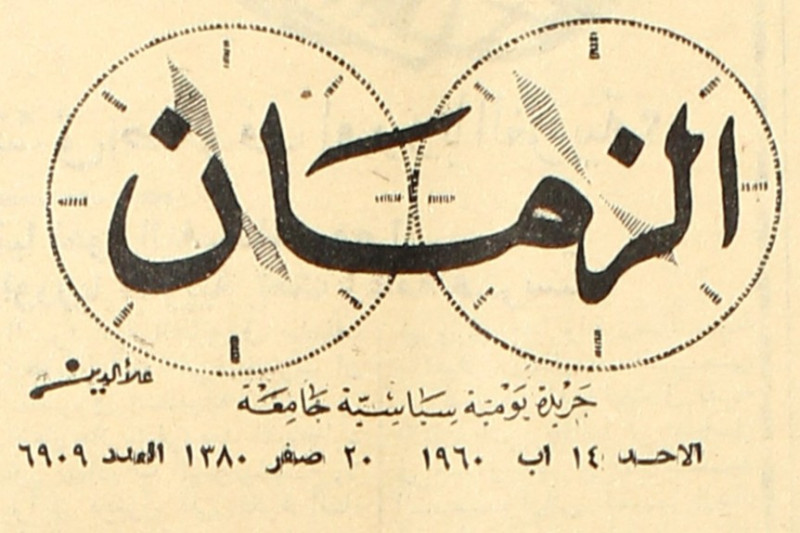 الزمان
علاءالدين
جريدة يومية سياسية جامعة
الاحد ١٤ اب ١٩٦٠ ٢٠ صفر ١٣٨٠ العدد ٦٩٠٩